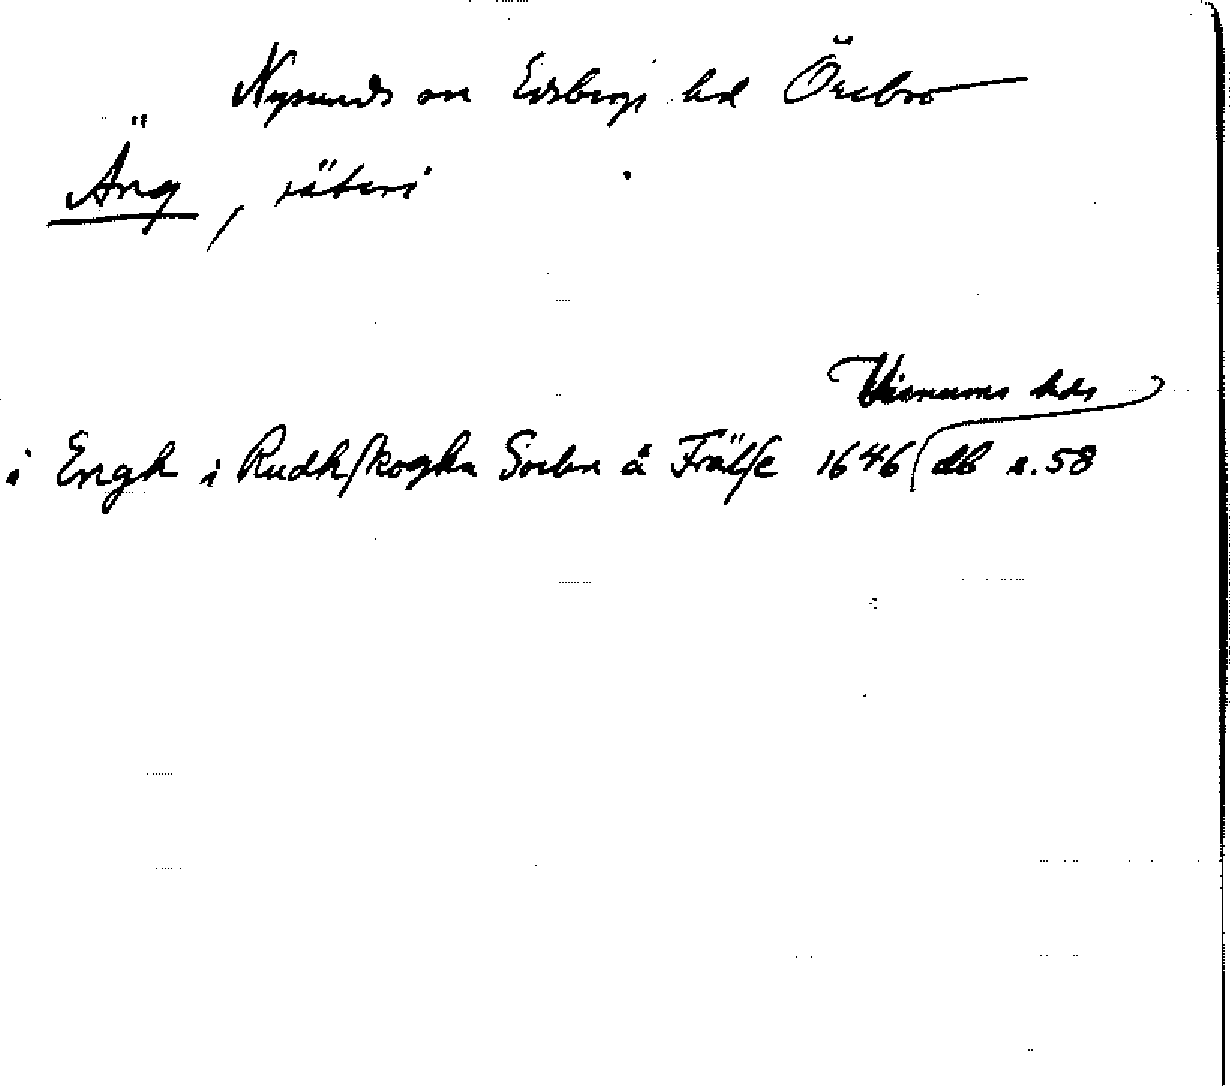 Nysunds sn Edsbergs hd Örebro
Äng, säteri
Visnums hds
i Engh i Rudhskogha Sochn å Frälse 1646 db s. 58